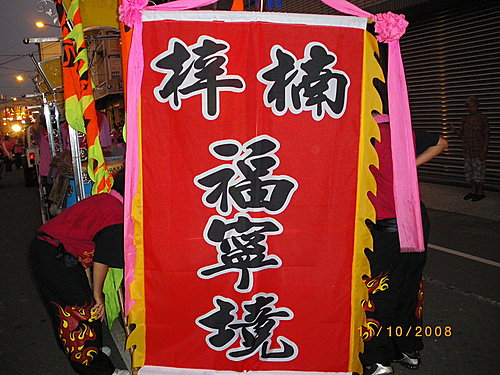 楠梓
福寧境
11/10/2008